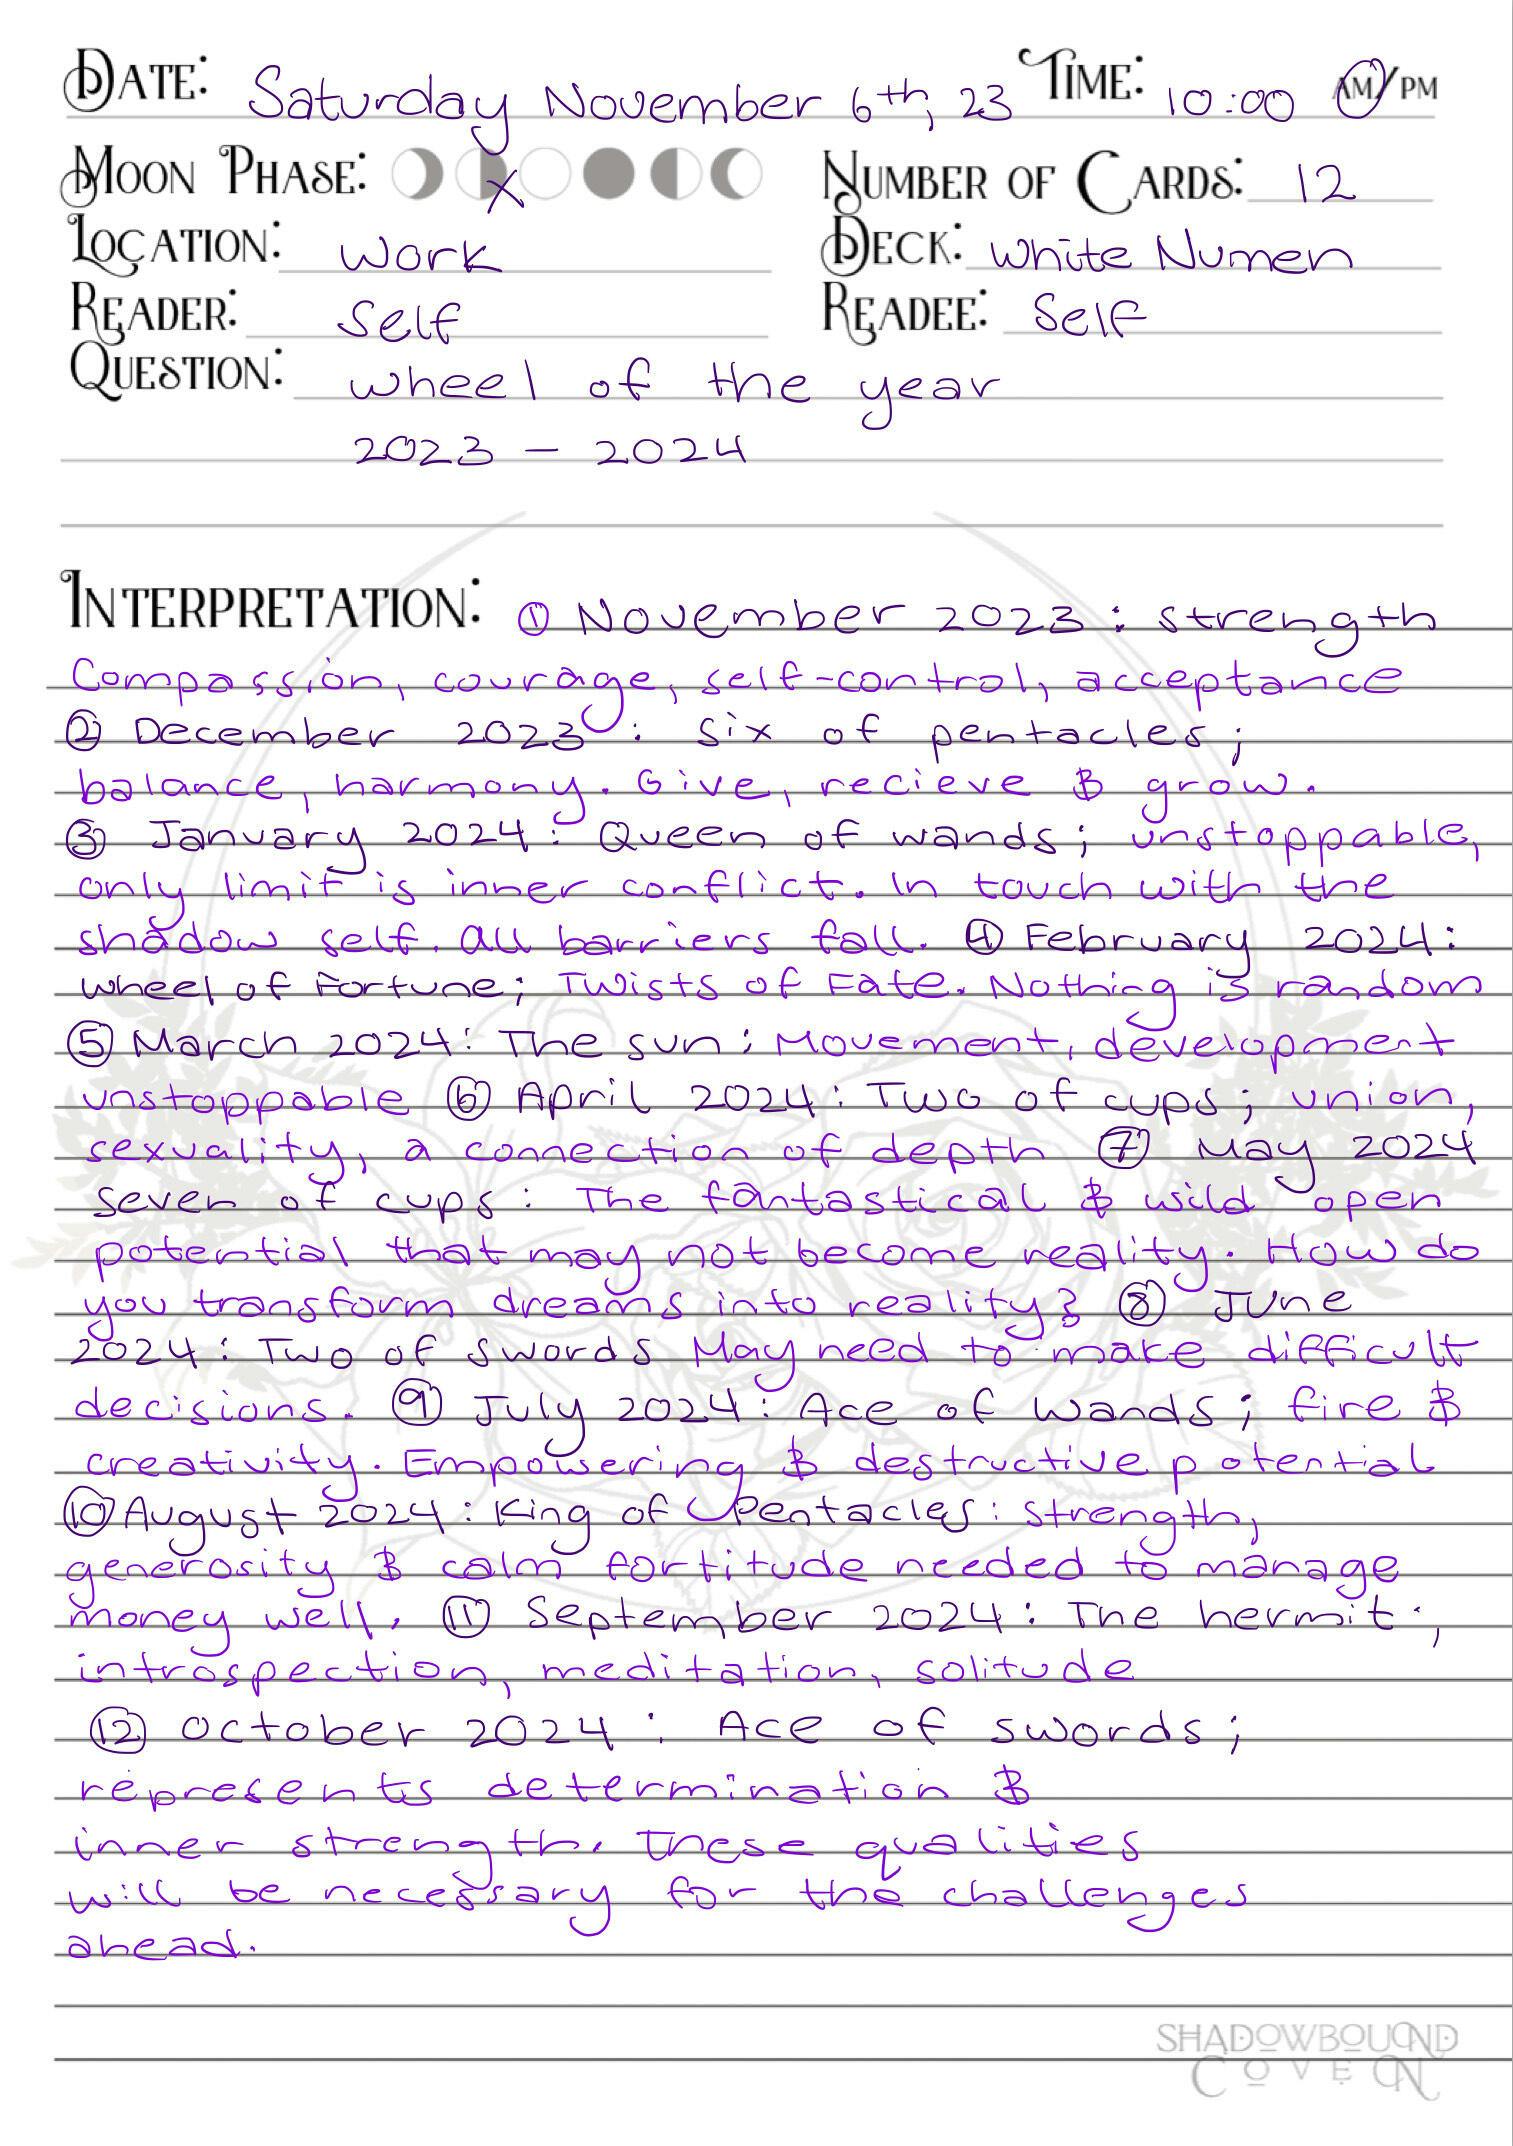 DATE: Saturday November 6th, 23 TIME: 10:00 AM/PM
MOON PHASE: X NUMBER OF CARDS: 12
LOCATION: Work DECK: White Numen
READER: Self READEE: Self
QUESTION: wheel of the year
2023 - 2024
INTERPRETATION: ① November 2023 : strength
Compassion, courage, self-control, acceptance
② December 2023 : Six of pentacles;
balance, harmony. Give, recieve & grow.
③ January 2024: Queen of wands; unstoppable,
only limit is inner conflict. In touch with the
shadow self. All barriers fall. ④ February 2024:
wheel of Fortune; Twists of Fate. Nothing is random
⑤ March 2024: The sun; Movement, development
unstoppable ⑥ April 2024: Two of cups; union,
sexuality, a connection of depth ⑦ May 2024
seven of cups: The fantastical & wild open
potential that may not become reality. How do
you transform dreams into reality? ⑧ June
2024: Two of swords May need to make difficult
decisions. ⑨ July 2024: Ace of wands; fire &
creativity. Empowering & destructive potential
⑩ August 2024: King of Pentacles: strength,
generosity & calm fortitude needed to manage
money well. ⑪ September 2024: The hermit;
introspection, meditation, solitude
⑫ October 2024: Ace of swords;
represents determination &
inner strength. These qualities
will be necessary for the challenges
ahead.
SHADOWBOUND
COVEN